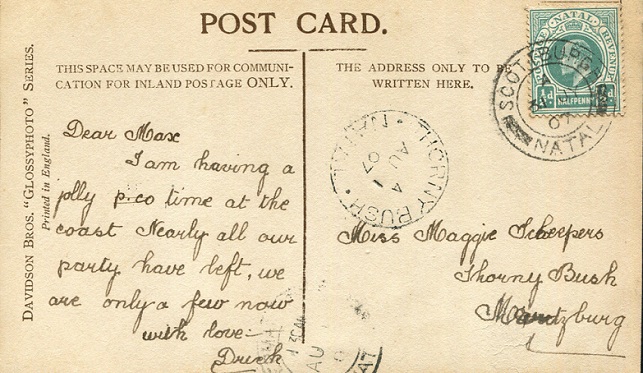 POST CARD.
THIS SPACE MAY BE USED FOR COMMUNI-
CATION FOR INLAND POSTAGE ONLY.
THE ADDRESS ONLY TO BE
WRITTEN HERE.
DAVIDSON BROS. "GLOSSYPHOTO" SERIES.
Printed in England.
Dear Max
I am having a
jolly time at the
coast Nearly all our
party have left, we
are only a few now
with love
Miss Maggie Scheepers
Thorny Bush
Maritzburg
NATAL
REVENUE
HALFPENNY
NATAL
07
THORNY BUSH
NATAL
AU
4
07
AU